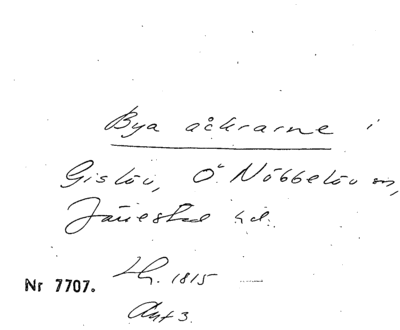 Bya åckrarne i
Gislöv, Ö Nöbbelöv sn,
Järrestad hd.
Nr 7707. Lh. 1815
Avt 3.